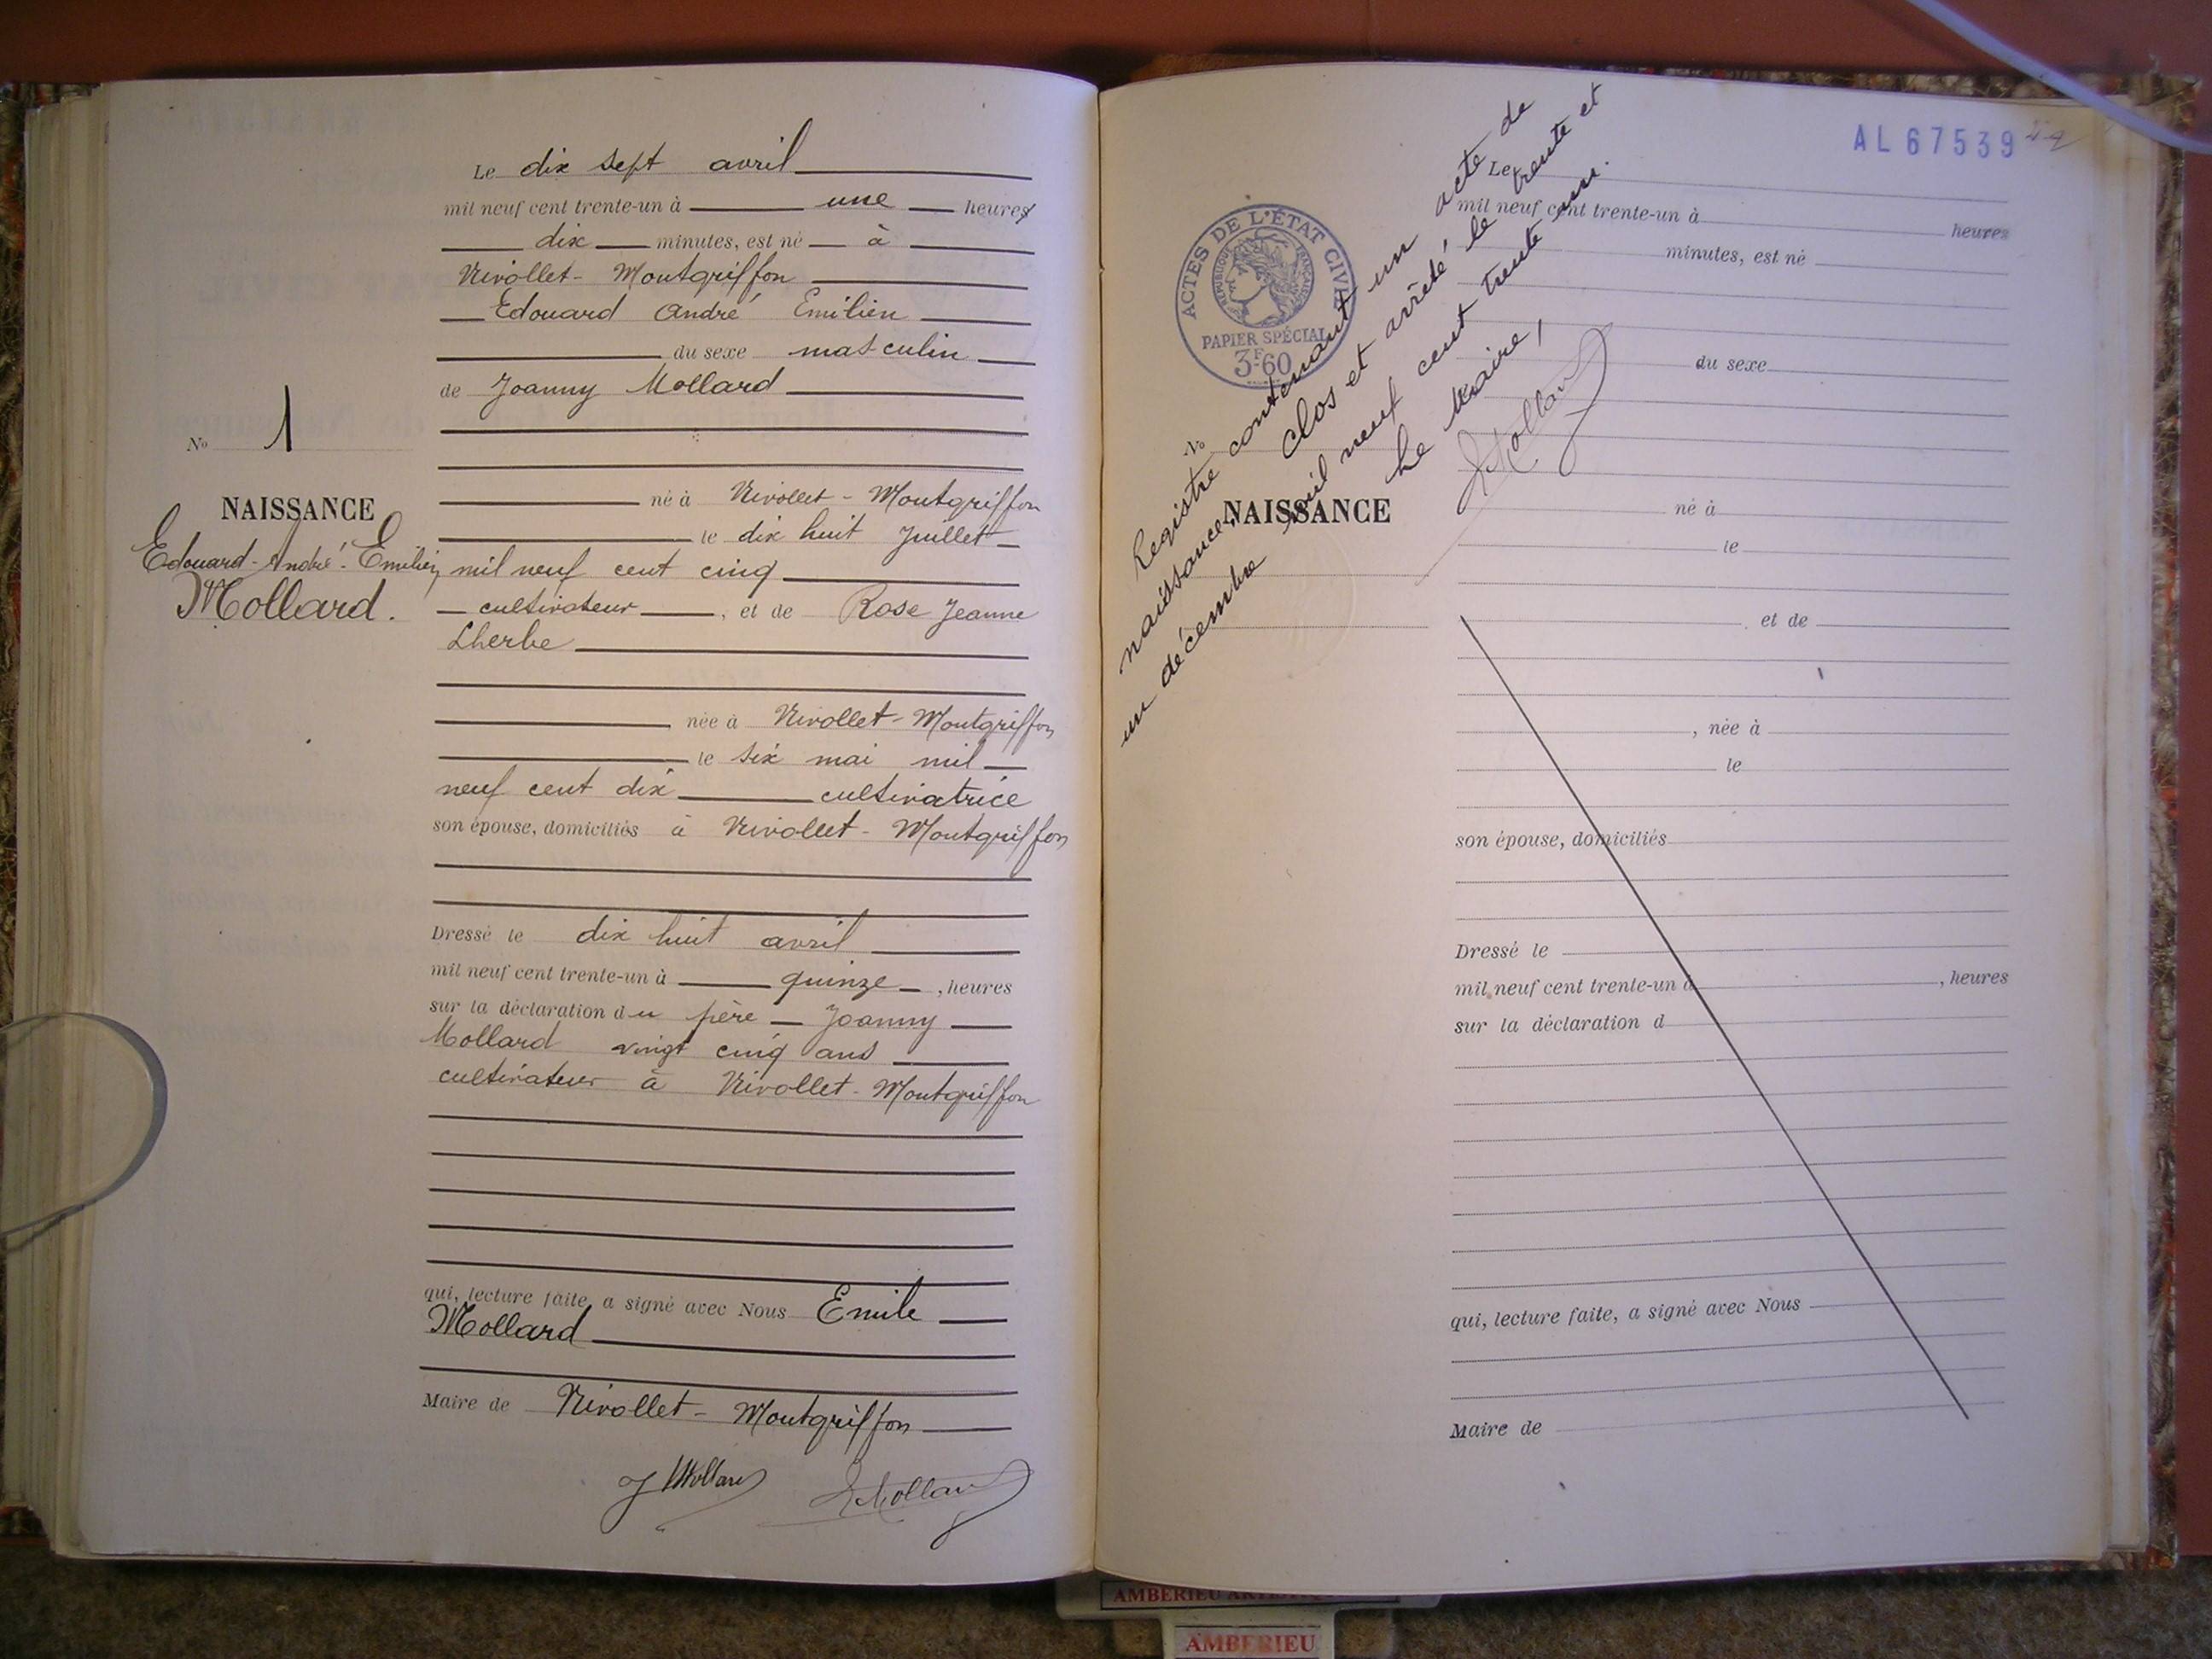 Le dix sept avril
mil neuf cent trente-un à une heures
dix minutes, est né à
Nivollet - Montgriffon
Edouard André Emilien
du sexe masculin
de Joanny Mollard
né à Nivollet - Montgriffon
le dix huit Juillet
mil neuf cent cinq
cultivateur, et de Rose Jeanne
Lherbe
née à Nivollet - Montgriffon
le six mai mil
neuf cent dix cultivatrice
son épouse, domiciliés à Nivollet - Montgriffon
Dressé le dix huit avril
mil neuf cent trente-un à quinze, heures
sur la déclaration du père Joanny
Mollard vingt cinq ans
cultivateur à Nivollet - Montgriffon
qui, lecture faite, a signé avec Nous Emile
Mollard
Maire de Nivollet - Montgriffon
J Mollard
E Mollard
No 1
NAISSANCE
Edouard-André-Emilien
Mollard.
AL 67539
ACTES DE L'ÉTAT CIVIL
RÉPUBLIQUE FRANÇAISE
PAPIER SPÉCIAL
3F60
Registre contenant un acte de
naissance, clos et arrêté le trente et
un décembre mil neuf cent trente un.
Le Maire,
E Mollard
No
NAISSANCE
Le
mil neuf cent trente-un à heures
minutes, est né
du sexe
né à
le
et de
, née à
le
son épouse, domiciliés
Dressé le
mil neuf cent trente-un à , heures
sur la déclaration d
qui, lecture faite, a signé avec Nous
Maire de
AMBERIEU
AMBERIEU